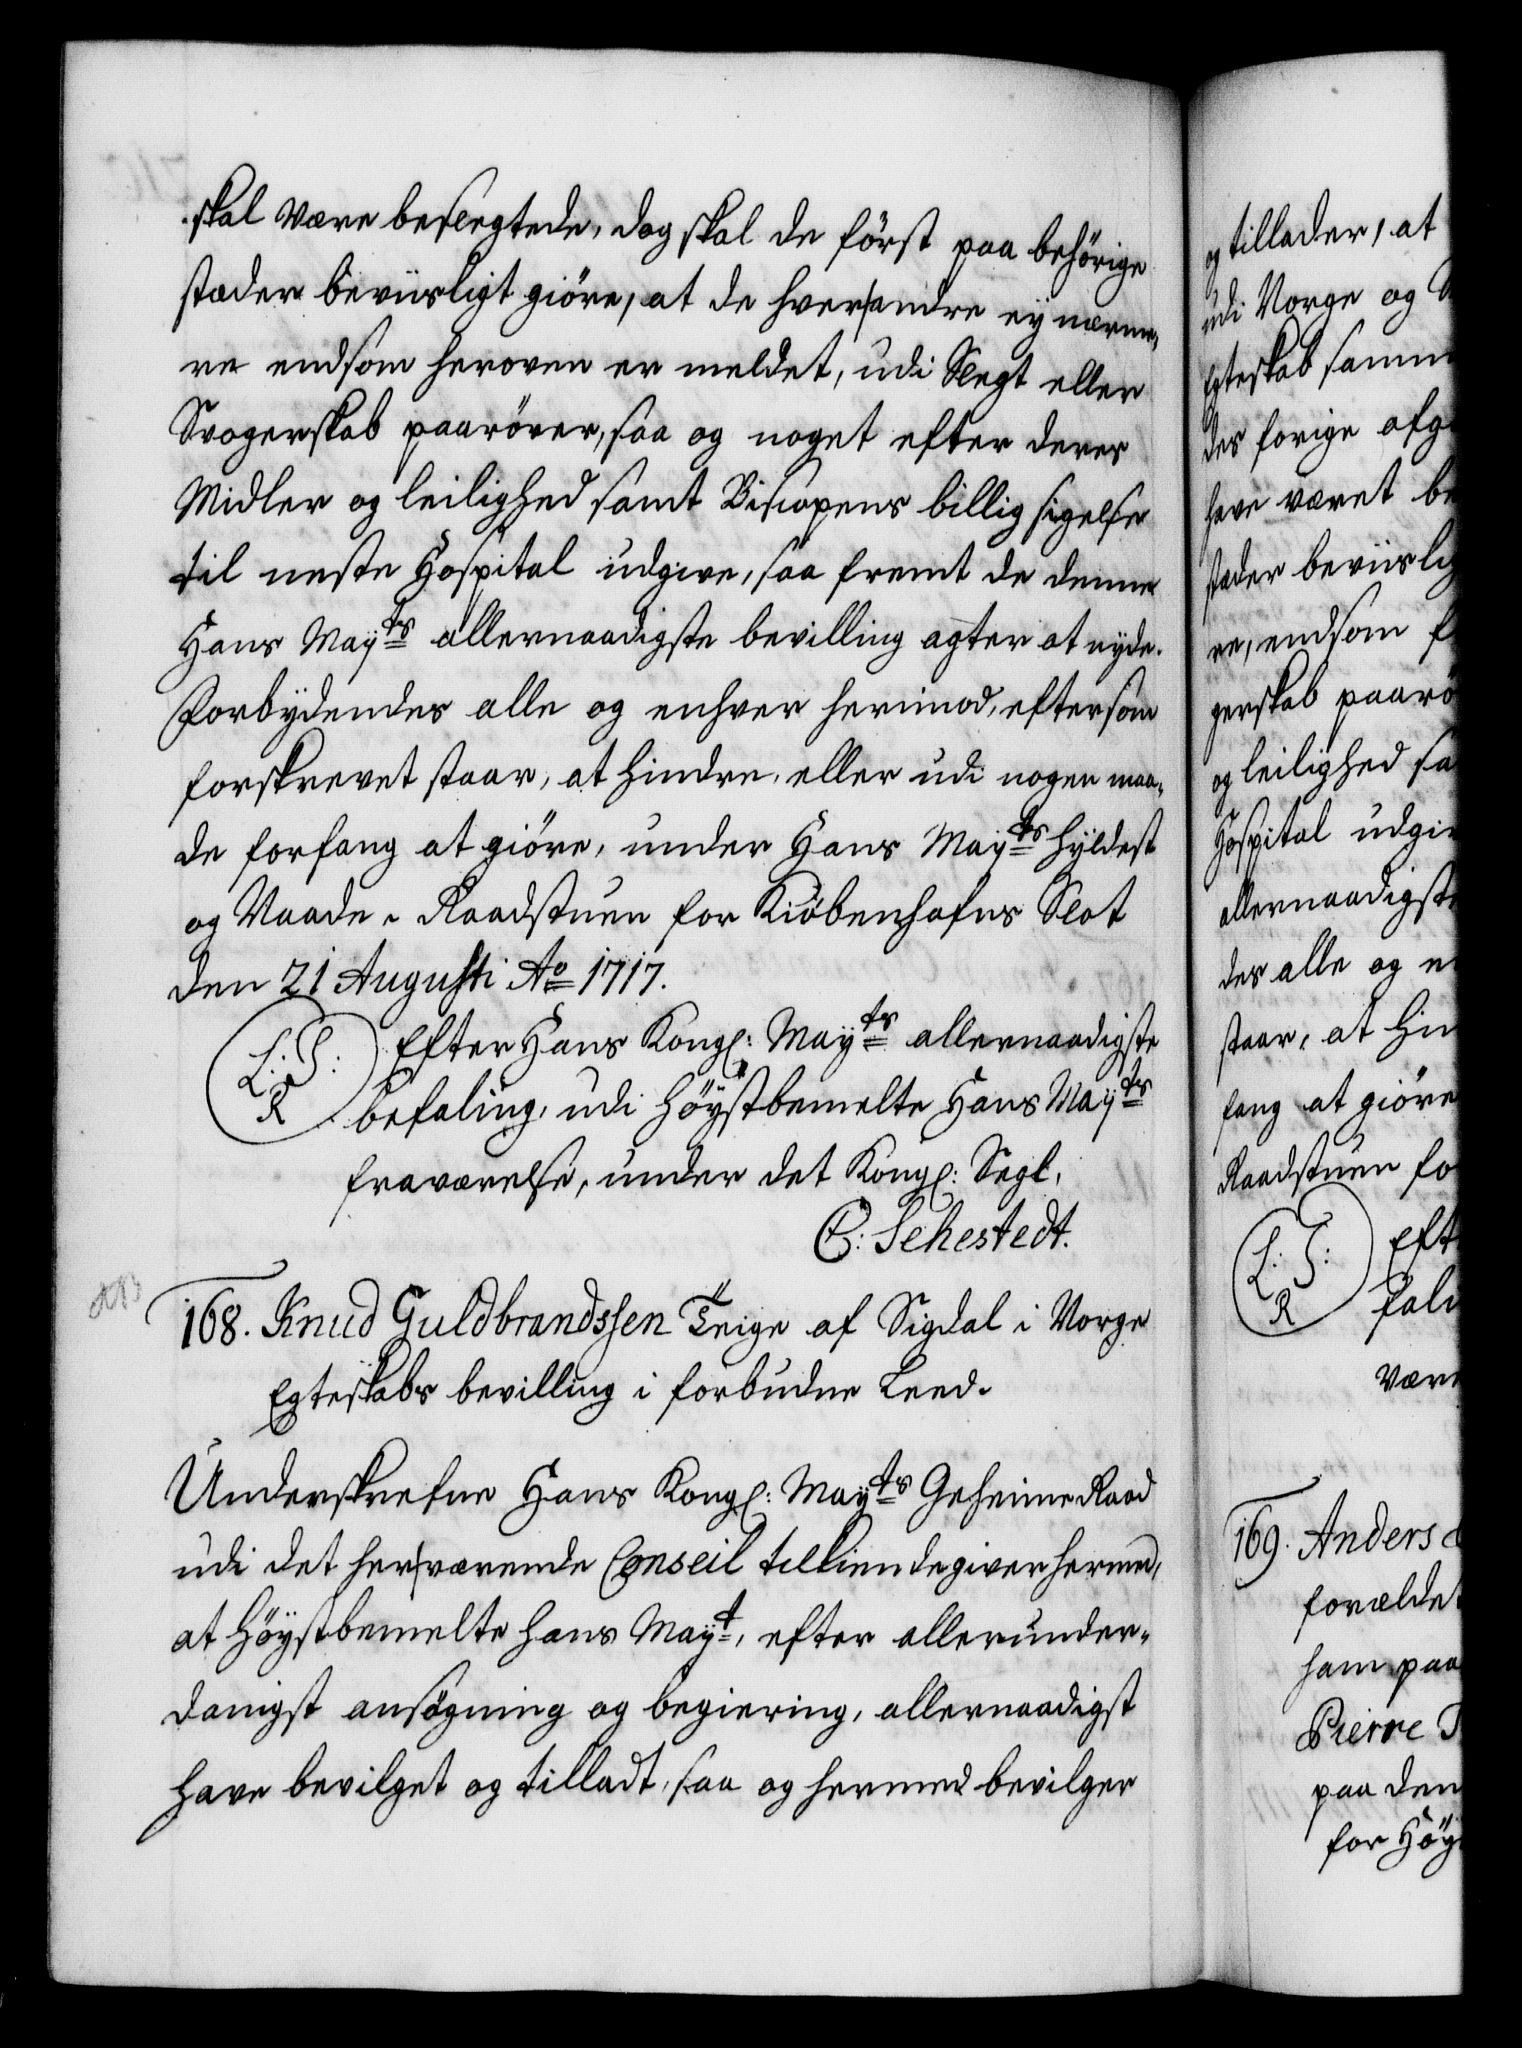 skal være beslegtede, dog skal de först paa behörige
stæder beviisligt giöre, at de hver andre ey nærme-
re endsom heroven er meldet, udi Slegt eller
Svogerskab paarörer, saa og noget efter deres
Midler og leilighed samt Biscopens billig sigelse
til neste Hospital udgive, saa fremt de denne
Hans Mayts allernaadigste bevilling agter at nyde.
Forbydendes alle og enhver herimod, eftersom
forskrevet staar, at hindre, eller udi nogen maa-
de forfang at giöre, under Hans Mayts hyldest
og Naade. Raadstuen for Kiöbenhafns Slot
den 21 Augusti Ao 1717.
L: S:
R
Efter Hans Kongl: Mayts allernaadigste
befaling, udi Höystbemelte Hans Mayts
fraværelse, under det Kongl: Segl.
C: Sehestedt.
168. Knud Guldbrandssen Teige af Sigdal i Norge
Egteskabs bevilling i forbudne Leed.
Underskrefne Hans Kongl: Mayts Geheime Raad
udi det herværende Conseil tilkiendegiver hermed,
at Höystbemelte hans Mayt, efter allerunder-
danigst ansögning og begiering, allernaadigst
have bevilget og tilladt, saa og hermed bevilger
og tillader, at
udi Norge og
Egteskab samm
des forige afg
have været be
stæder beviislig
re, endsom
gerskab paarö
og leilighed sa
Hospital udgiv
allernaadigste
des alle og en
staar, at hin
fang at giöre
Raadstuen fo
L: S:
R
Eft
fali
være
169. Anders
forældet
ham paa
Pierre
paa den
for Höy